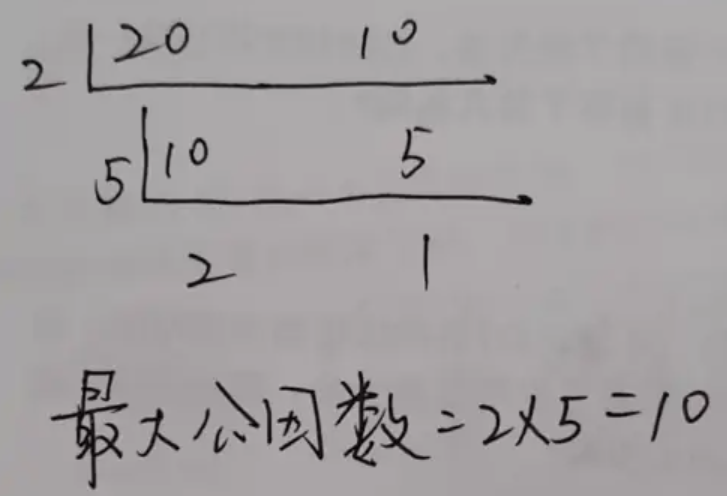 2 20 10
5 10 5
2 1
最大公因数=2×5=10